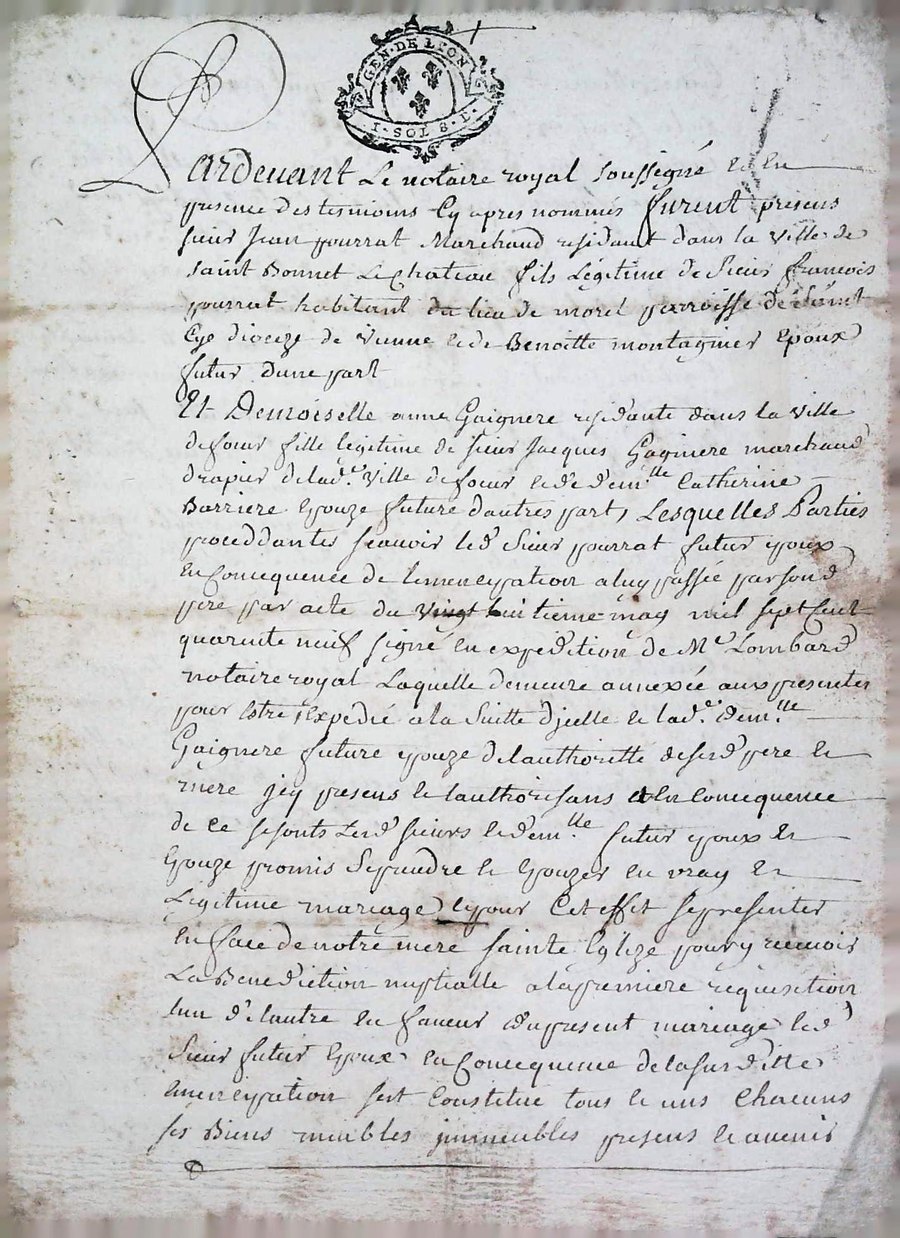 GEN. DE LYON
I. SOL 8. D.
Pardevant Le notaire royal soussigné et En
presence des tesmoins Cy apres nommés furent presens
sieur Jean pourrat Marchand residant dans la Ville de
Saint Bonnet Le Chateau fils Légitime de Sieur francois
pourrat habitant du lieu de morel parroisse de Saint
dioceze de Vienne et de Benoitte montagnier Epoux
futur dune part
Et Demoiselle anne Gaignere residante dans la Ville
fille legitime de sieur Jacques Gagniere marchand
drapier de lad.e Ville et de dem.lle Catherine
Barriere Epouze future dautres part, Lesquelles Parties
proceddantes scavoir led Sieur pourrat futur Epoux
En Concequence de lemencypation a luy passée par sond
pere par acte du Vingt huitieme may mil sept Cent
quarante neuf signé En expedition de M.e Lombard
notaire royal Laquelle demeure annexée aux presentes
pour Estre Expedié a la Suitte dicelle et lad.e dem.lle
Gaignere future Epouze de lauthoritté de sesd pere et
mere jcy presens et lauthorisans Et En Concequence
de Ce se sonts Lesd sieurs et dem.lle futur Epoux et
Epouze promis Se prendre et Epouzer En vray et
Légitime mariage Et pour Cet effet se presenter
En face de notre mere sainte Eglize pour y recevoir
La Benediction nuptialle a la premiere requisition
lun d'lautre En faveur du present mariage led
Sieur futur Epoux En Concequence de la susditte
Emencypation sest Constitué tous et uns Chacuns
ses Biens meubles jmmeubles presens et avenir